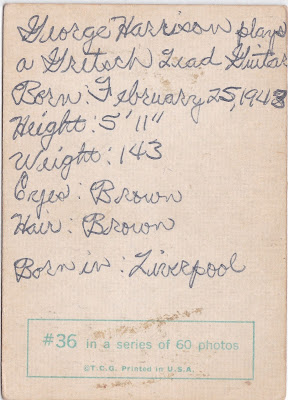 George Harrison plays
a Gritsch Lead Guitar
Born: February 25, 1943
Height: 5' 11"
Weight: 143
Eyes: Brown
Hair: Brown
Born in: Liverpool
#36 in a series of 60 photos
©T.C.G. Printed in U.S.A.